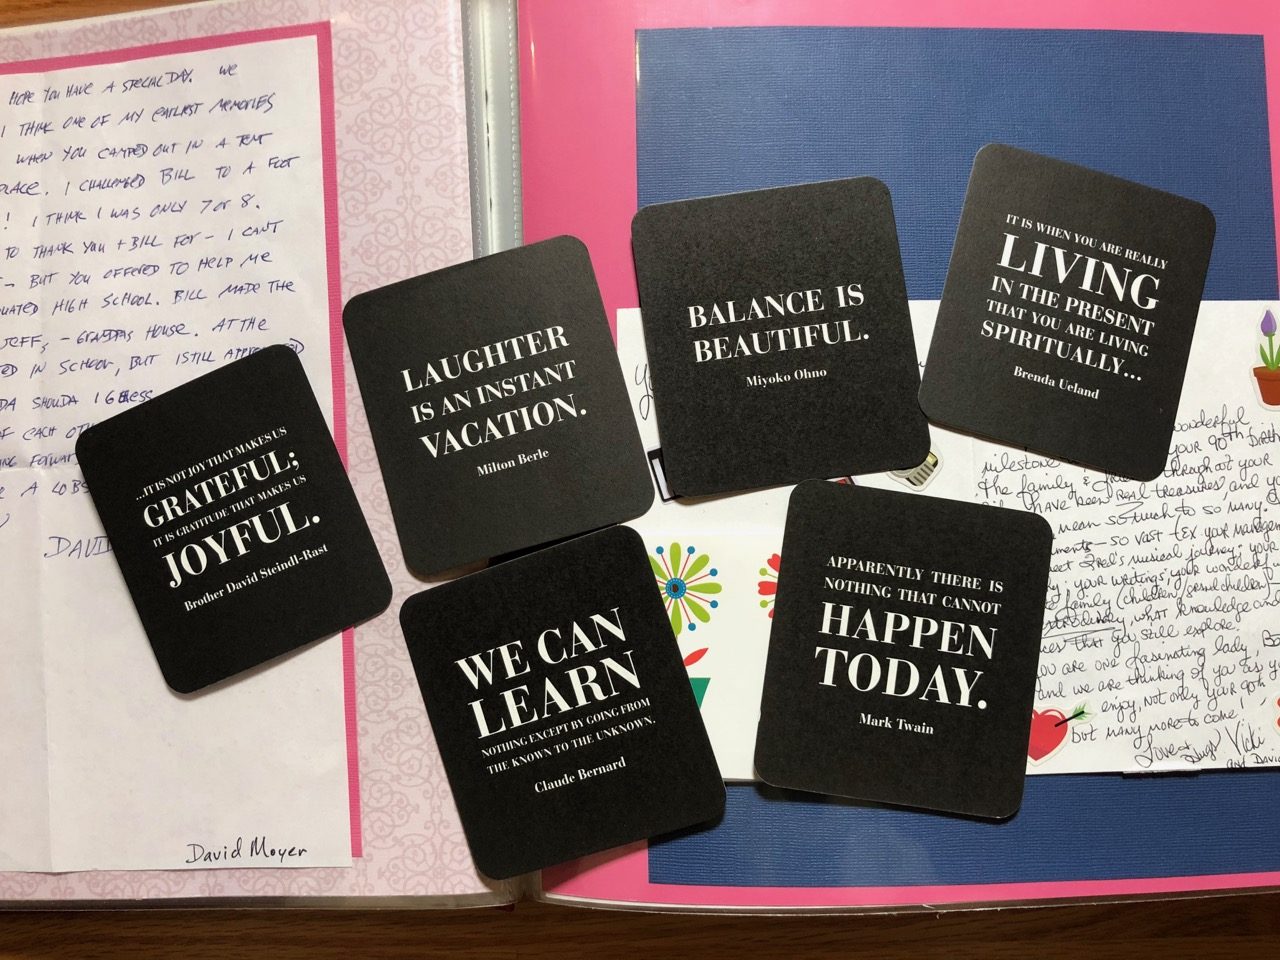 HOPE YOU HAVE A SPECIAL DAY. WE
I THINK ONE OF MY EARLIEST MEMORIES
WHEN YOU CAMPED OUT IN A TENT
PLACE. I CHALLENGED BILL TO A FOOT
! I THINK I WAS ONLY 7 OR 8.
TO THANK YOU + BILL FOR – I CAN'T
– BUT YOU OFFERED TO HELP ME
UATED HIGH SCHOOL. BILL MADE THE
JEFF, – GRANDPAS HOUSE. AT THE
ED IN SCHOOL, BUT I STILL
DA SHOULDA I GUESS
OF EACH
ING FORWA
A LOBS
DAVID
David Moyer
...IT IS NOT JOY THAT MAKES US
GRATEFUL;
IT IS GRATITUDE THAT MAKES US
JOYFUL.
Brother David Steindl-Rast
LAUGHTER
IS AN INSTANT
VACATION.
Milton Berle
WE CAN
LEARN
NOTHING EXCEPT BY GOING FROM
THE KNOWN TO THE UNKNOWN.
Claude Bernard
BALANCE IS
BEAUTIFUL.
Miyoko Ohno
IT IS WHEN YOU ARE REALLY
LIVING
IN THE PRESENT
THAT YOU ARE LIVING
SPIRITUALLY...
Brenda Ueland
APPARENTLY THERE IS
NOTHING THAT CANNOT
HAPPEN
TODAY.
Mark Twain
wonderful
milestone your 90th
the family & throughout your
have been real treasures, and
mean so much to so many.
ments – so vast your
musical journey; your
your writings; your wonderful
family (children/grandchildren)
what knowledge and
that you still explore.
you are one fascinating lady,
and we are thinking of you as
enjoy, not only your 90th
but many more to come!
Love & hugs Vicki
and David